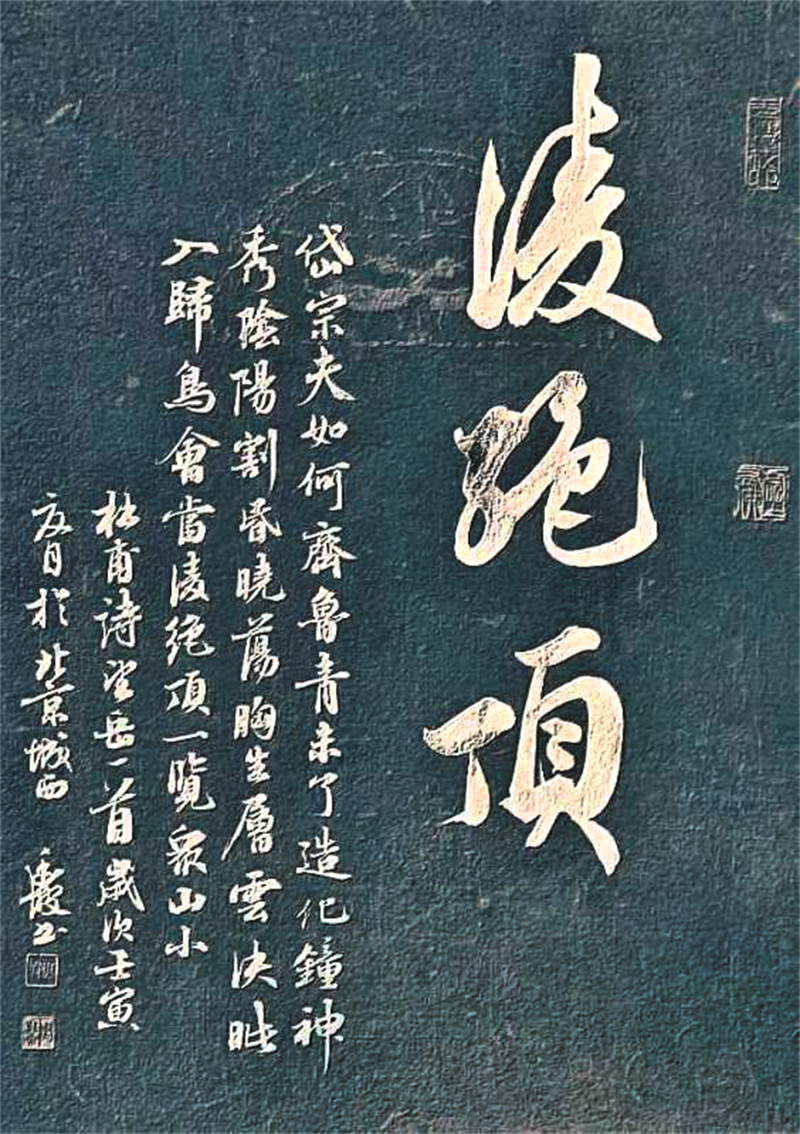 凌絕頂
岱宗夫如何齊魯青未了造化鐘神
秀陰陽割昏曉蕩胸生層雲決眦
入歸鳥會當凌絕頂一覽衆山小
杜甫詩望岳一首歲次壬寅
夏月於北京城西